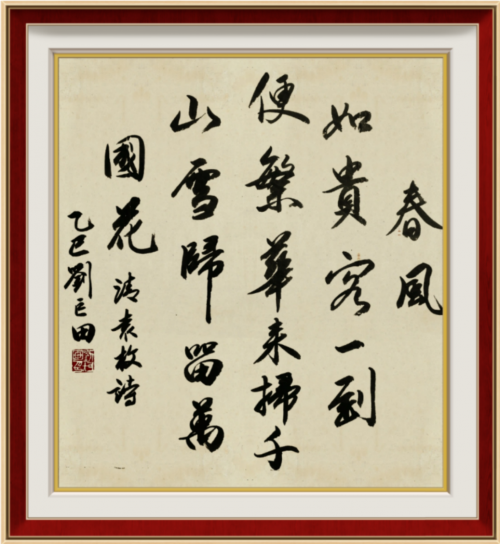 春風
如貴客一到
便繁華来掃千
山雪歸留萬
國花
清袁枚詩
乙巳劉
田